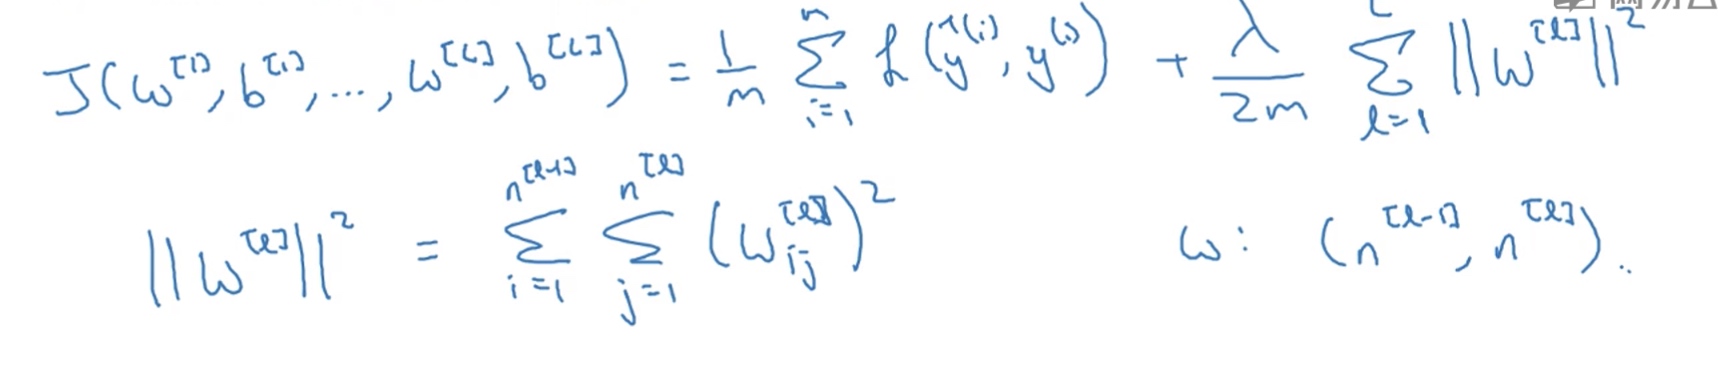 J(w^{[1]}, b^{[1]}, ..., w^{[L]}, b^{[L]}) = \frac{1}{m} \sum_{i=1}^{m} \mathcal{L}(\hat{y}^{(i)}, y^{(i)}) + \frac{\lambda}{2m} \sum_{l=1}^{L} ||w^{[l]}||^2
||w^{[l]}||^2 = \sum_{i=1}^{n^{[l-1]}} \sum_{j=1}^{n^{[l]}} (w_{ij}^{[l]})^2    w: (n^{[l-1]}, n^{[l]}).